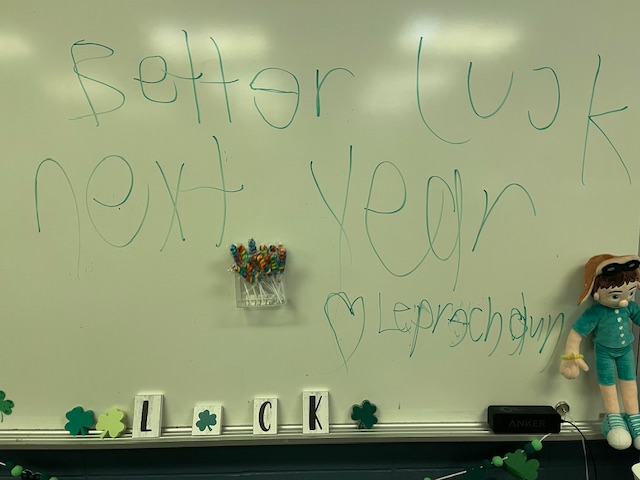 Better luck
next year
♡ Leprechaun
L ☘ C K
ANKER